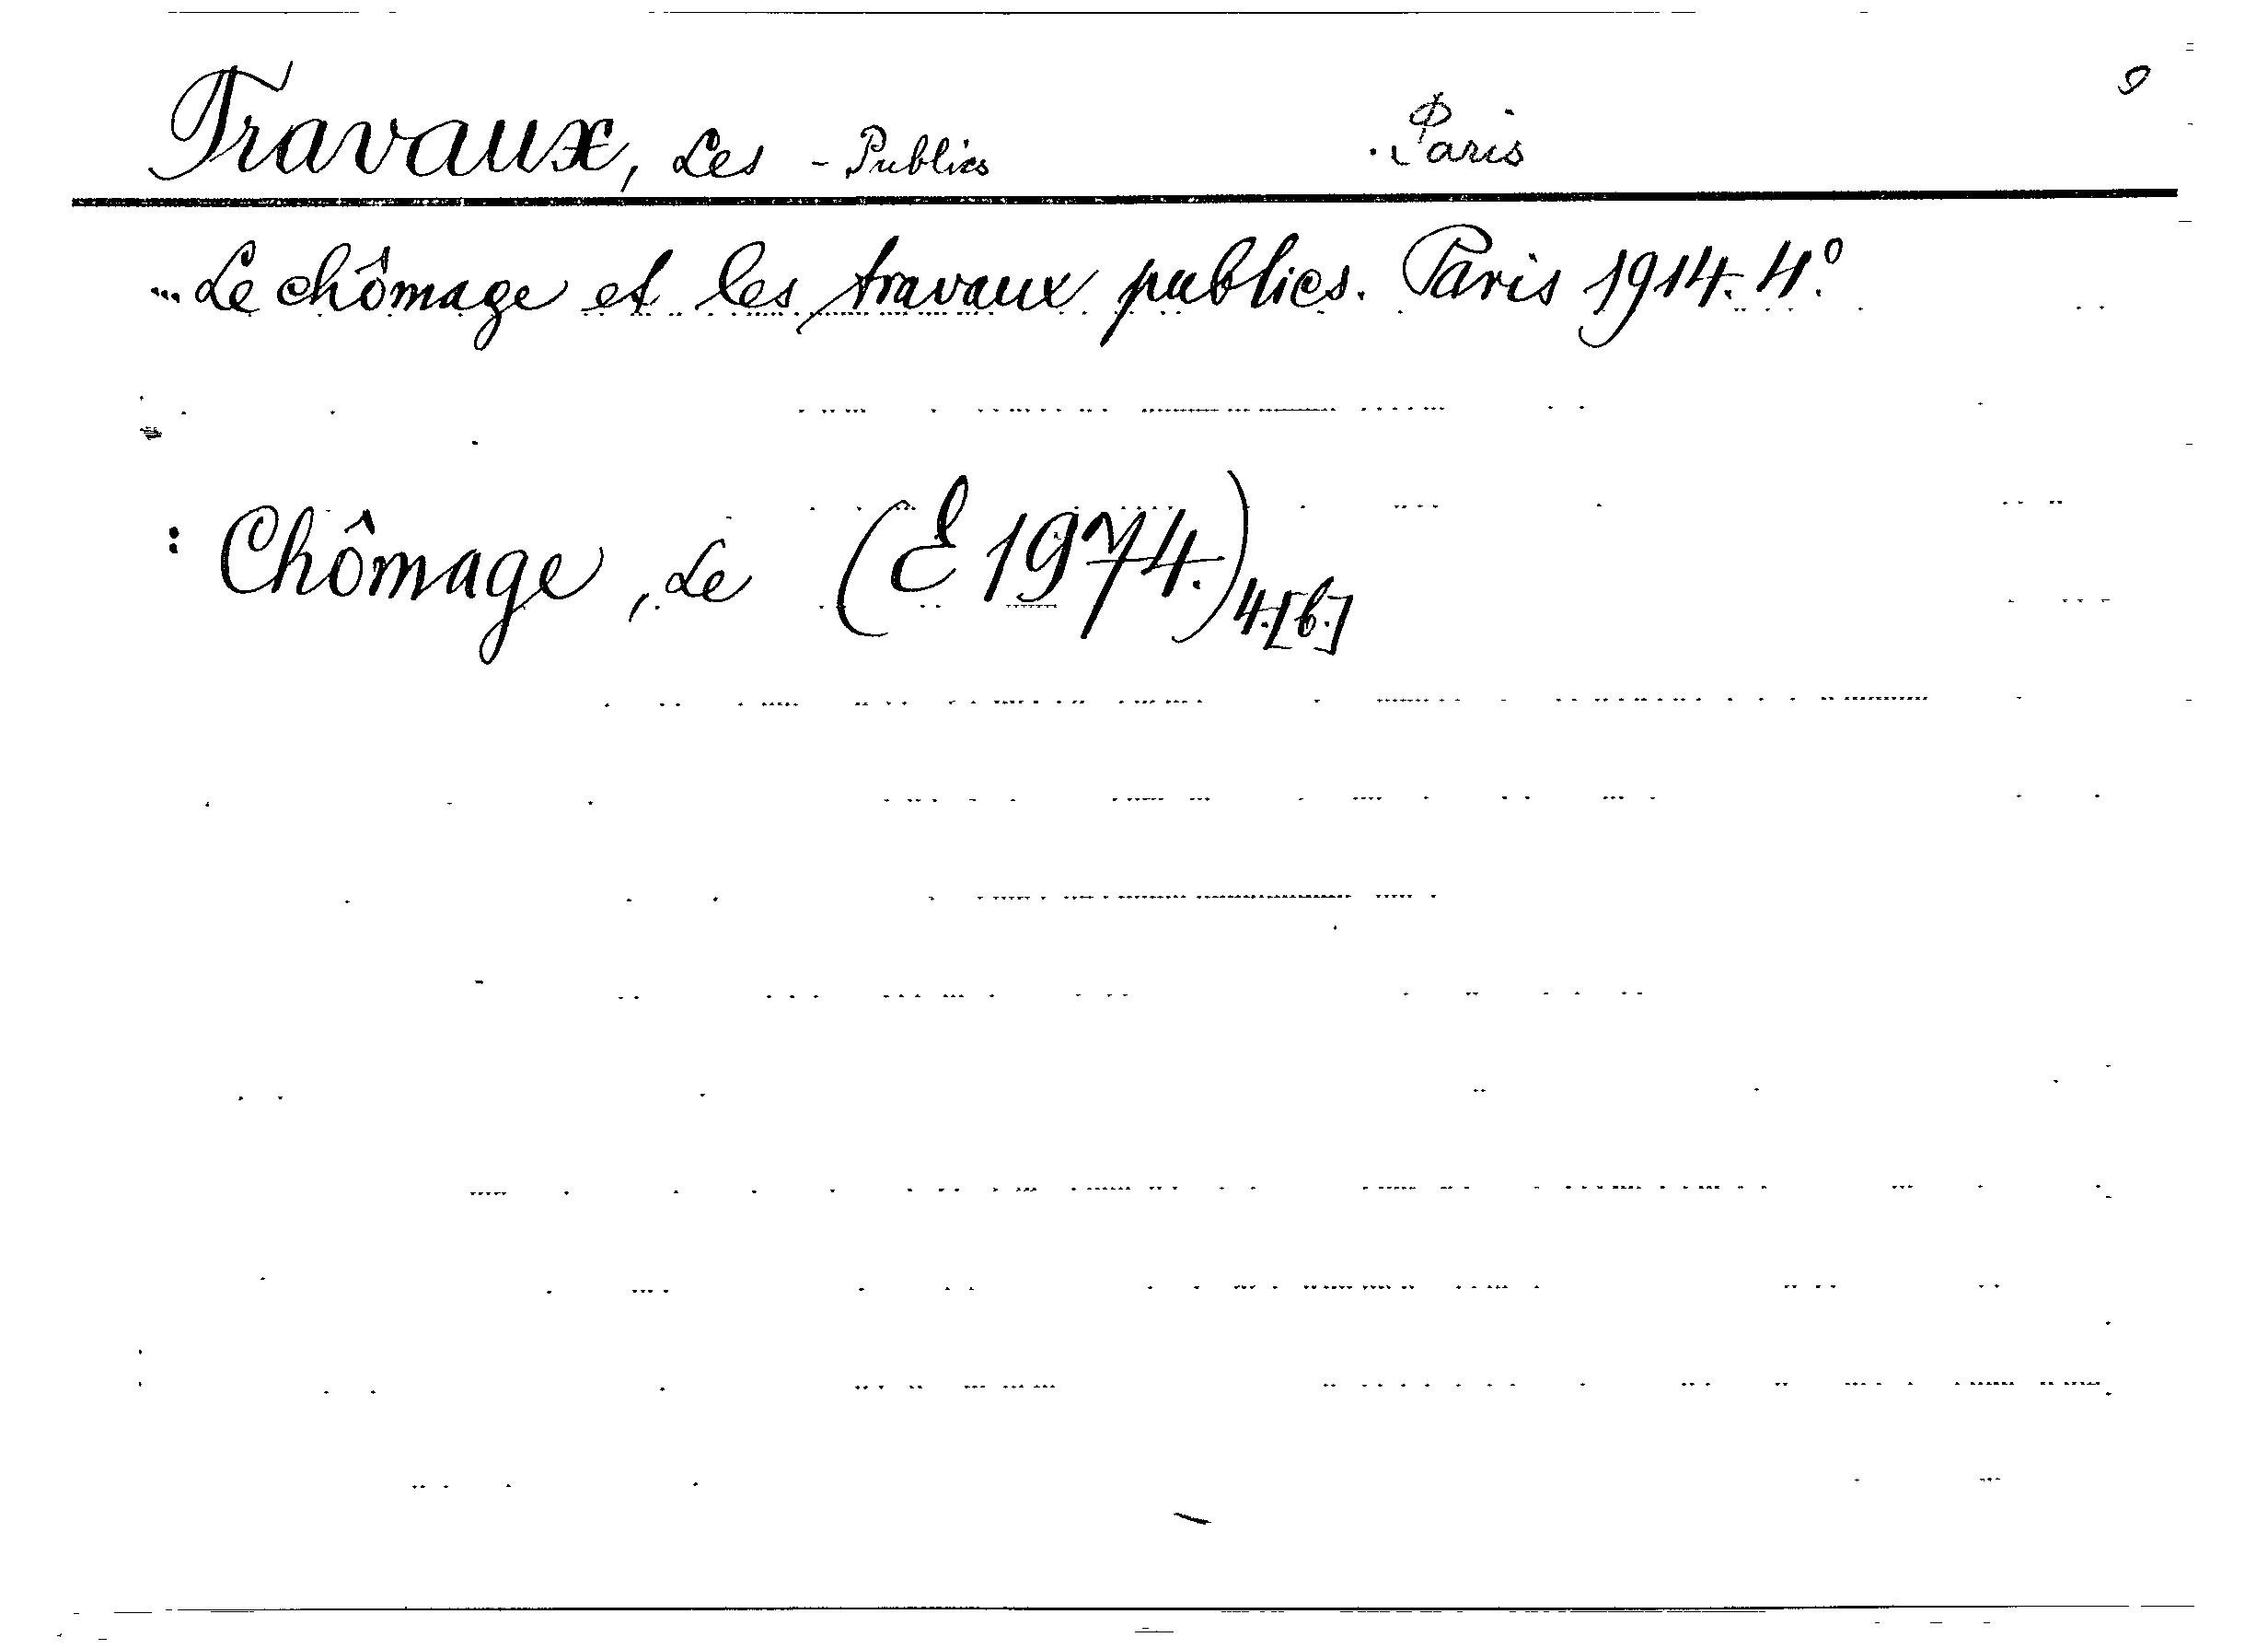 Travaux, Les - Publics Paris
... Le chômage et les travaux publics. Paris 1914. 4.º
: Chômage, Le (E 1974.) 4.[b.]